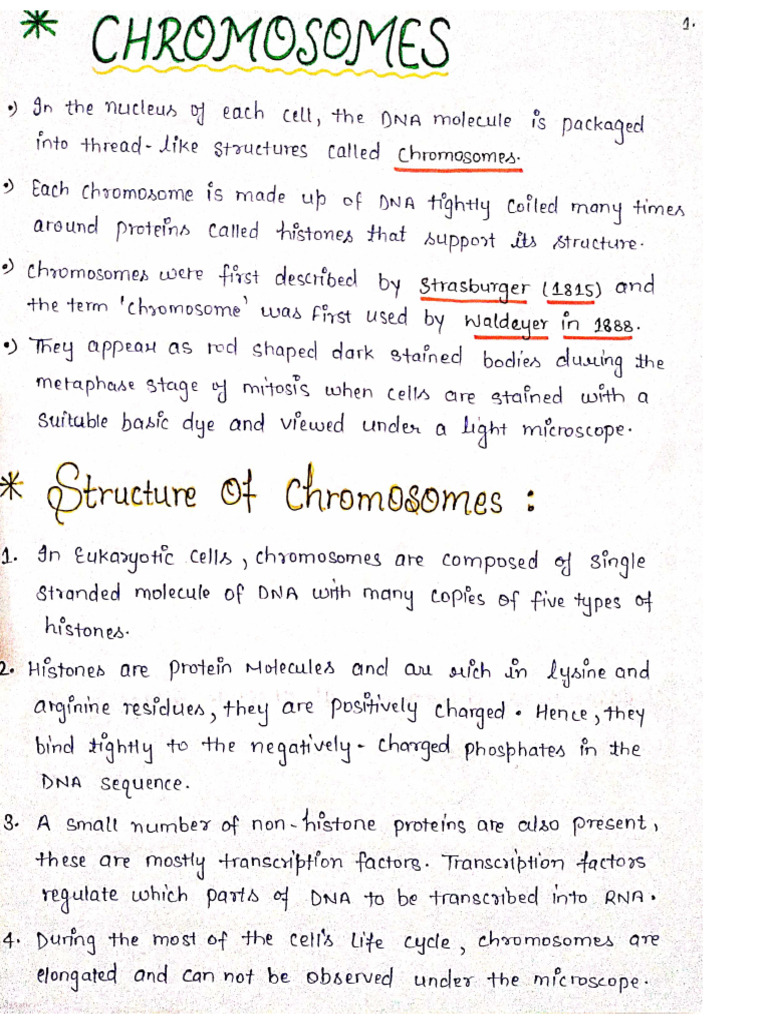 * CHROMOSOMES
1.
•) In the nucleus of each cell, the DNA molecule is packaged
into thread-like structures called Chromosomes.
•) Each chromosome is made up of DNA tightly coiled many times
around proteins called histones that support its structure.
•) Chromosomes were first described by Strasburger (1815) and
the term 'chromosome' was first used by Waldeyer in 1888.
•) They appear as rod shaped dark stained bodies during the
metaphase stage of mitosis when cells are stained with a
suitable basic dye and viewed under a light microscope.
* Structure Of Chromosomes :
1. In Eukaryotic cells, chromosomes are composed of single
stranded molecule of DNA with many copies of five types of
histones.
2. Histones are protein Molecules and are rich in lysine and
arginine residues, they are positively charged. Hence, they
bind tightly to the negatively-charged phosphates in the
DNA sequence.
3. A small number of non-histone proteins are also present,
these are mostly transcription factors. Transcription factors
regulate which parts of DNA to be transcribed into RNA.
4. During the most of the cell's life cycle, chromosomes are
elongated and can not be observed under the microscope.